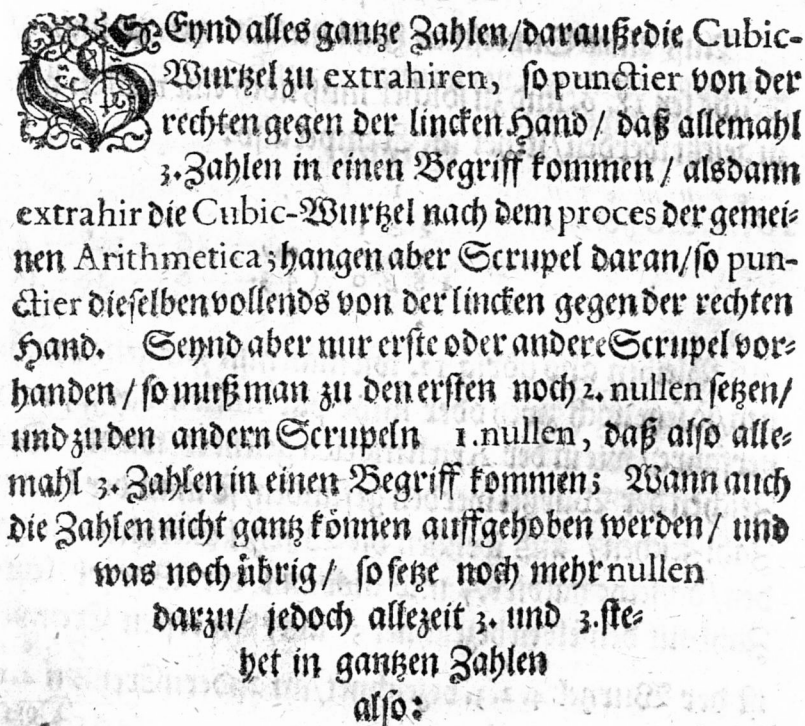 SEynd alles gantze Zahlen/darauß die Cubic-
Wurtzel zu extrahiren, so punctier von der
rechten gegen der lincken Hand / daß allemahl
3. Zahlen in einen Begriff kommen / alsdann
extrahir die Cubic-Wurtzel nach dem proces der gemei-
nen Arithmetica; hangen aber Scrupel daran/so pun-
ctier dieselben vollends von der lincken gegen der rechten
Hand. Seynd aber nur erste oder andere Scrupel vor-
handen / so muß man zu den ersten noch 2. nullen setzen/
und zu den andern Scrupeln 1. nullen, daß also alle-
mahl 3. Zahlen in einen Begriff kommen; Wann auch
die Zahlen nicht gantz können auffgehoben werden/ und
was noch übrig / so setze noch mehr nullen
darzu/ jedoch allezeit 3. und 3. ste-
het in gantzen Zahlen
also: